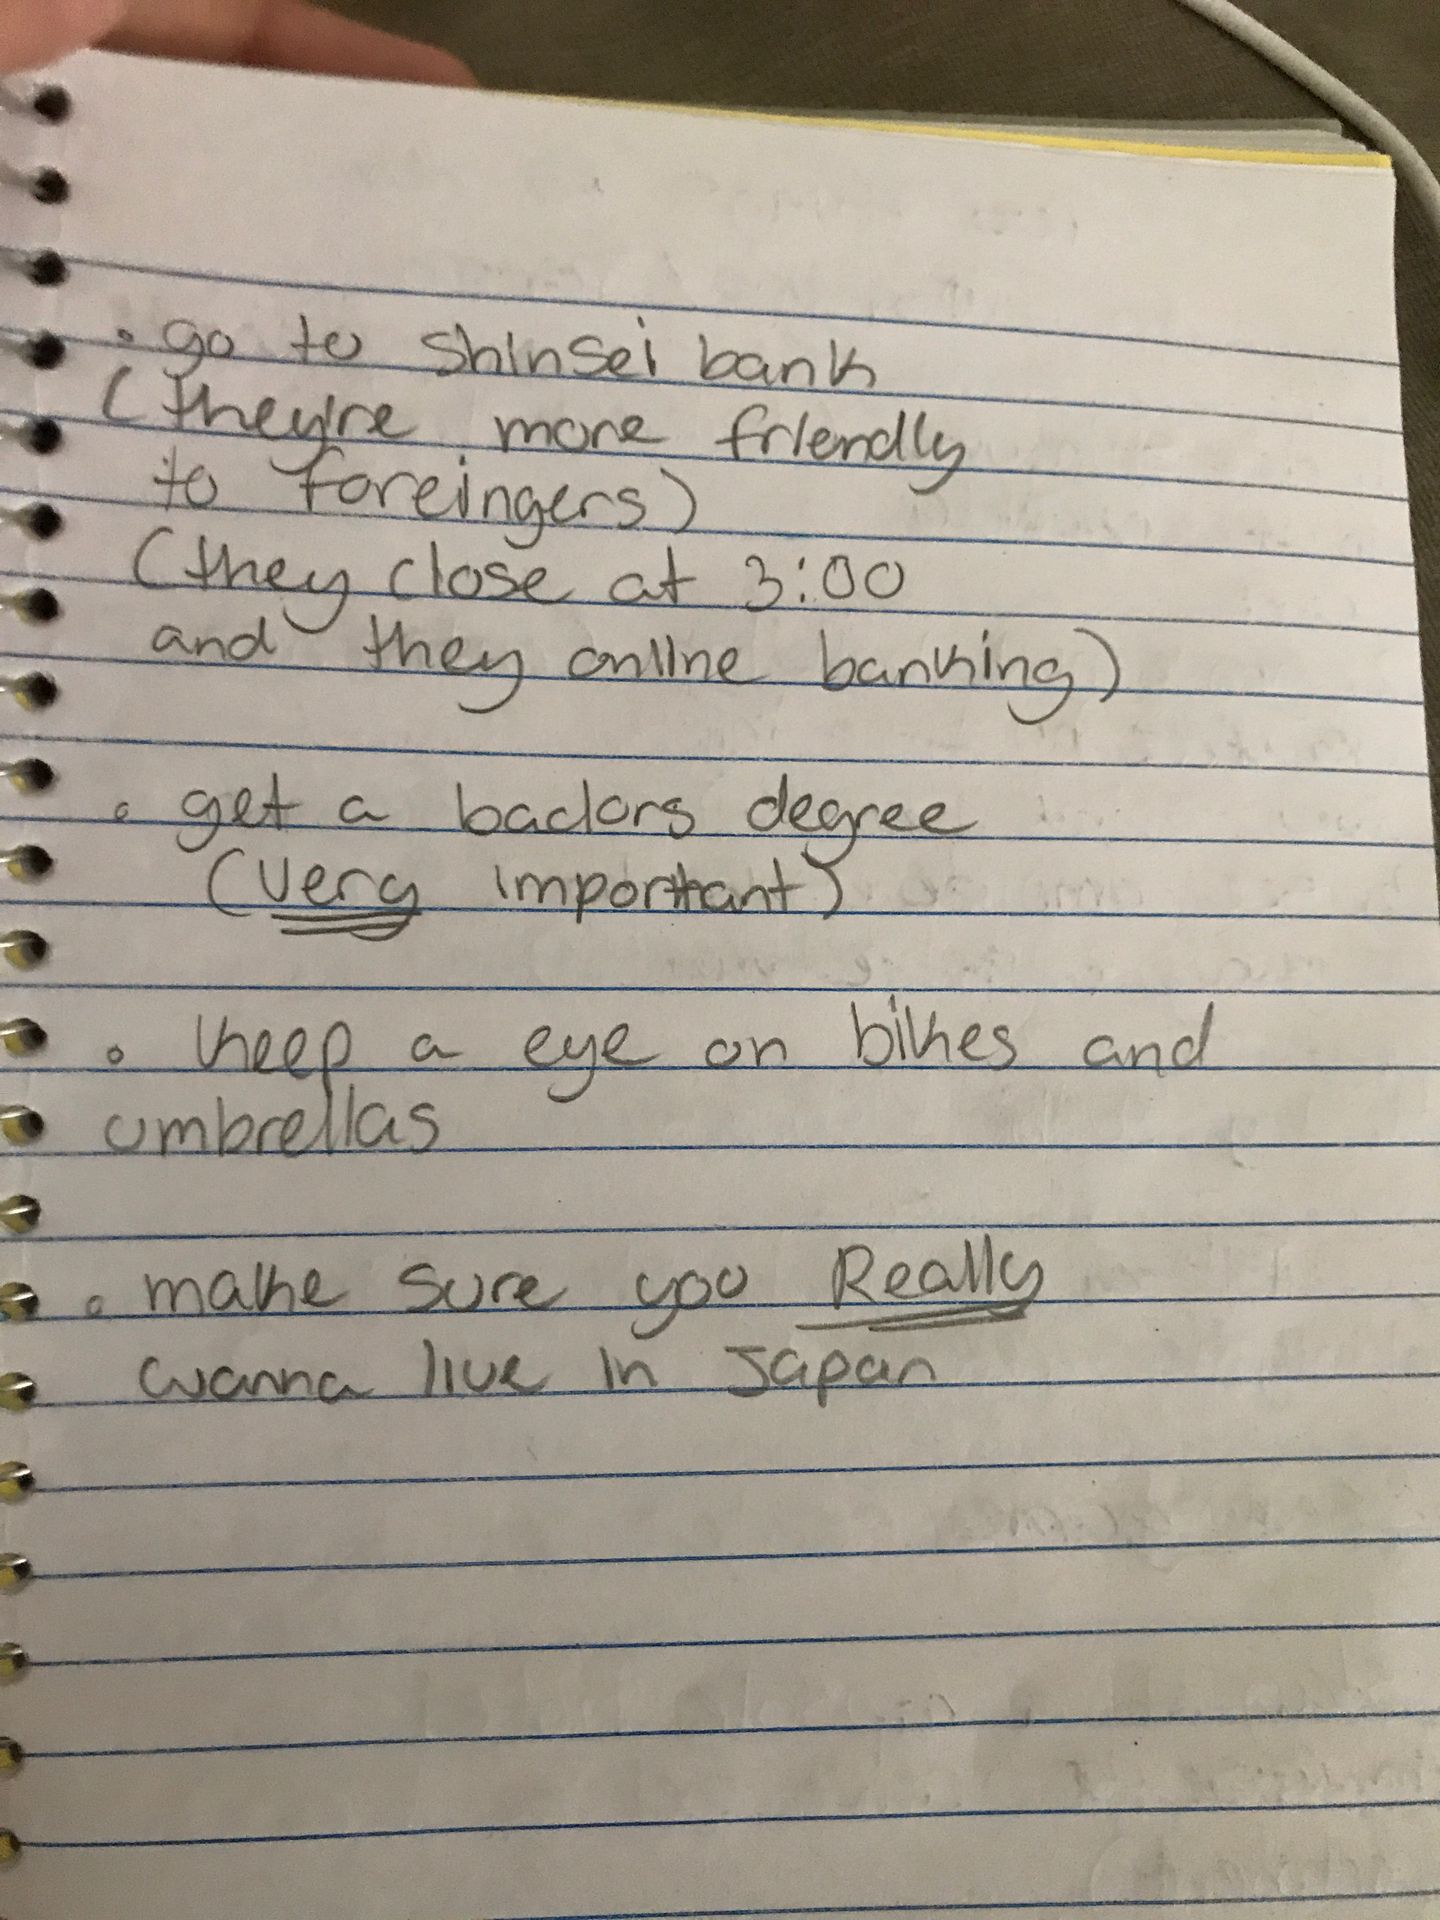 • go to shinsei bank
(they're more friendly
to foreingers)
(they close at 3:00
and they online banking)
• get a baclors degree
(very important)
• keep a eye on bikes and
umbrellas
• make sure you Really
wanna live in Japan